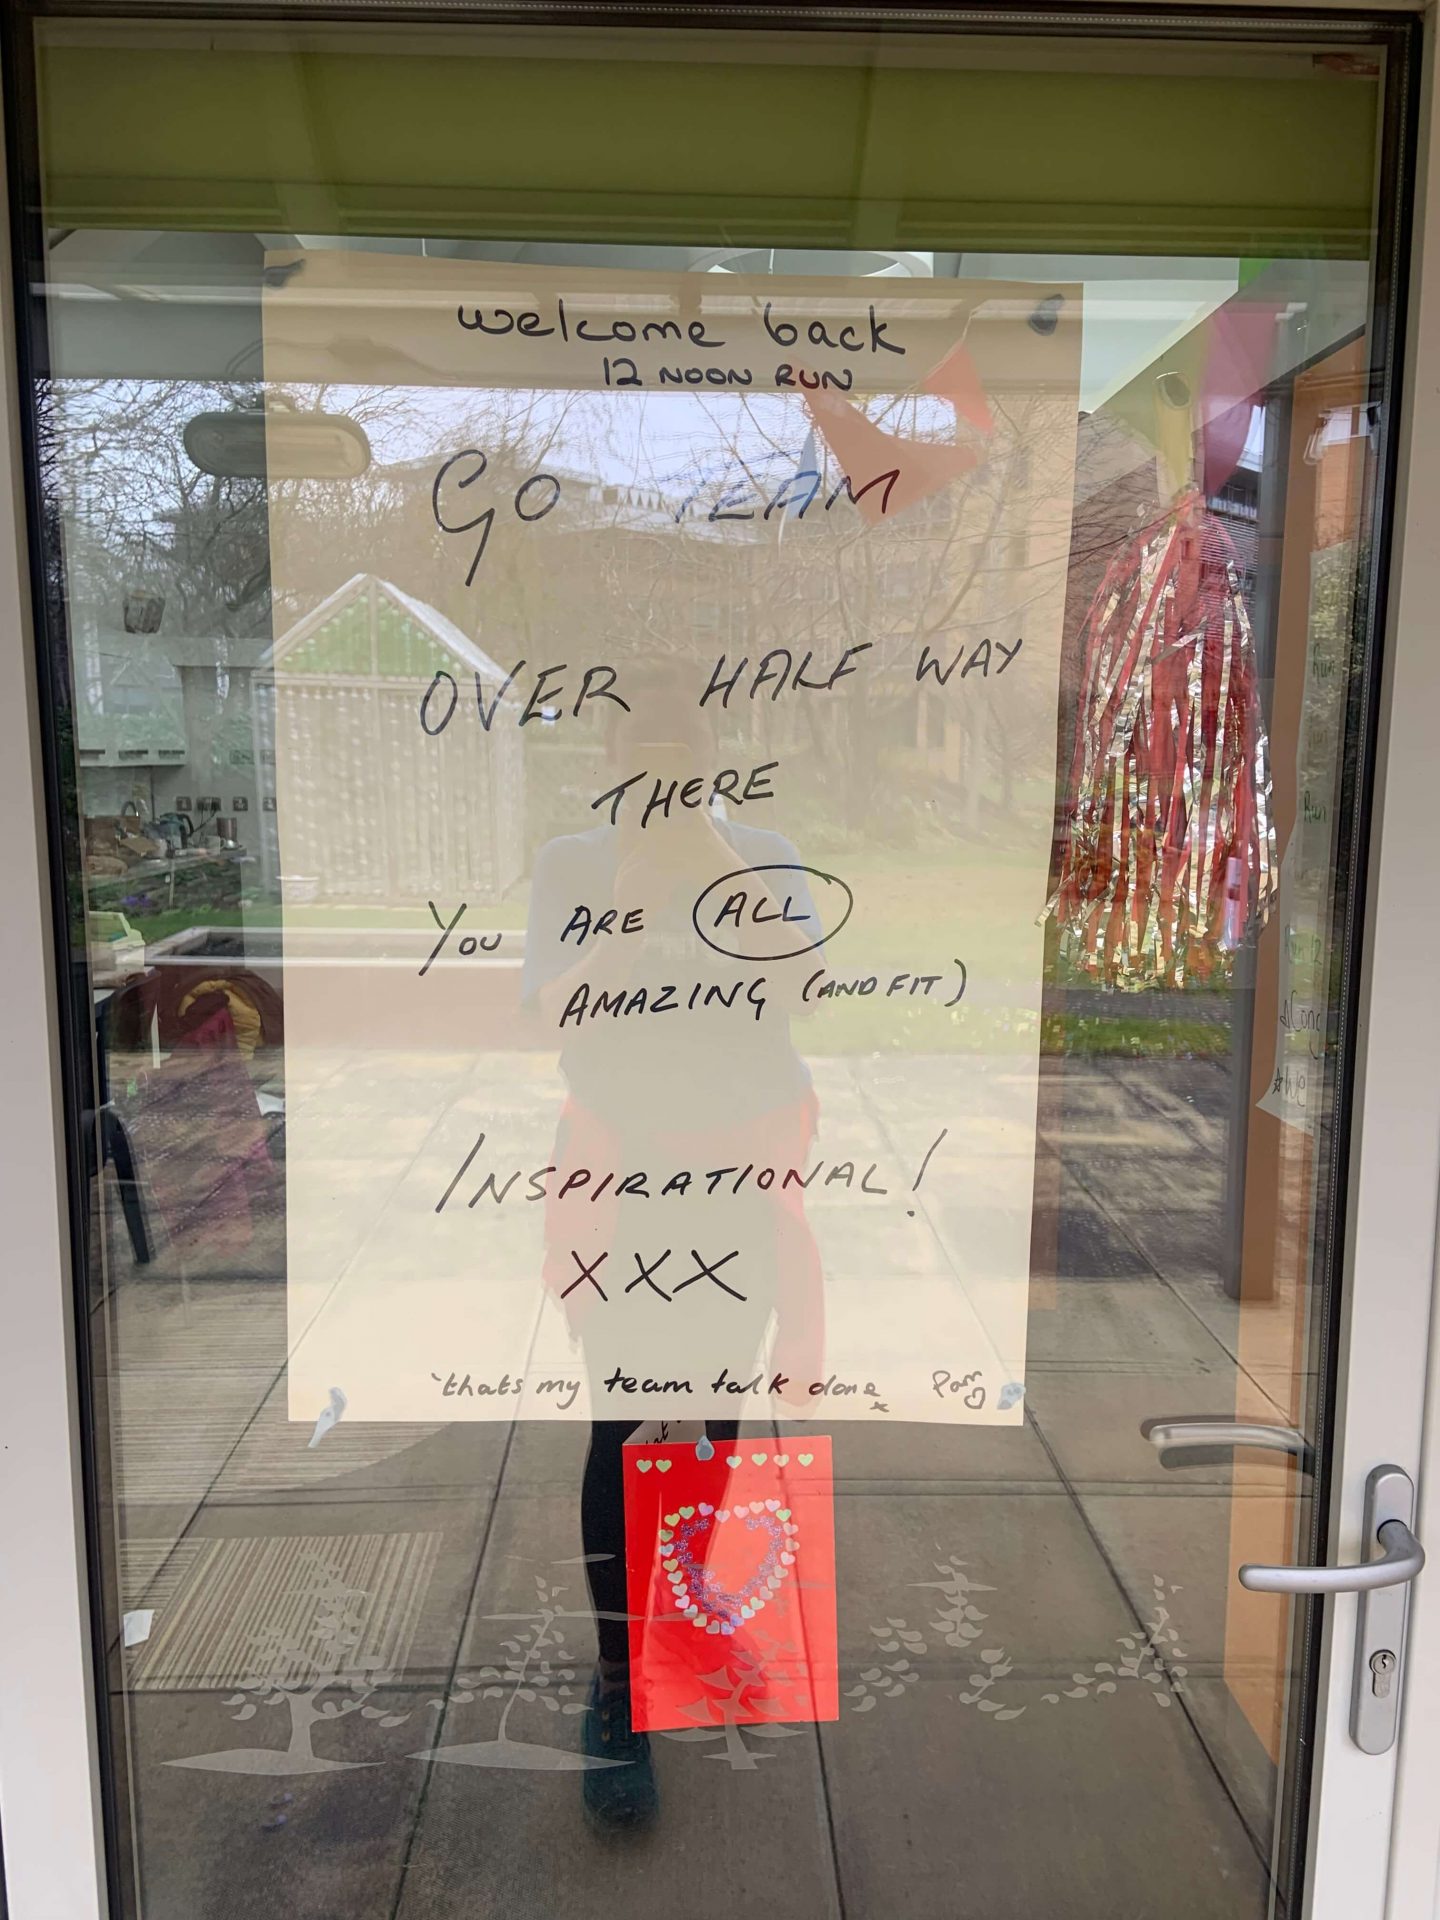 welcome back
12 NOON RUN
GO TEAM
OVER HALF WAY
THERE
YOU ARE ALL
AMAZING (AND FIT)
INSPIRATIONAL!
XXX
'thats my team talk done x Pam